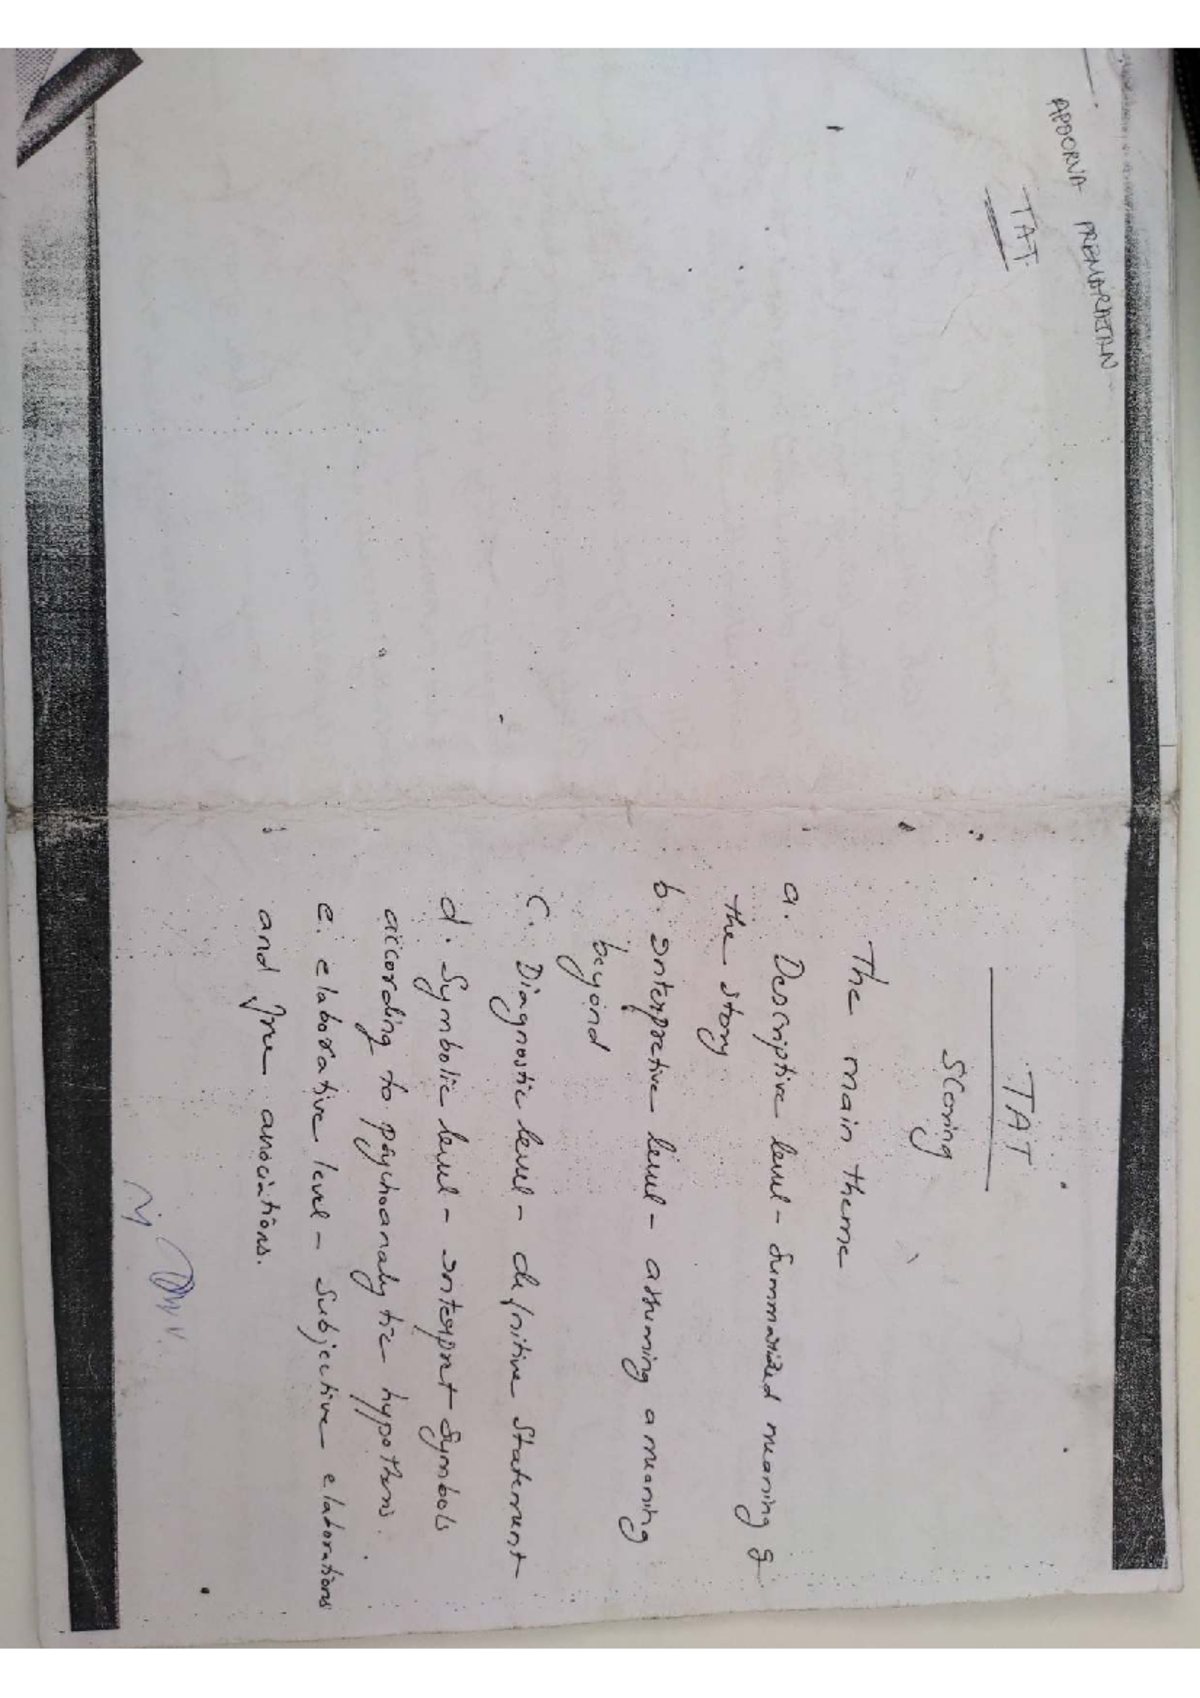 APOORVA PREMARAJAN
TAT
TAT
Scoring
The main theme
a. Descriptive level - Summarized meaning of
the story
b. Interpretive level - assuming a meaning
beyond
c. Diagnostic level - definitive statement
d. Symbolic level - interpret symbols
according to psychoanalytic hypothesis.
e. elaborative level - Subjective elaborations
and free associations.